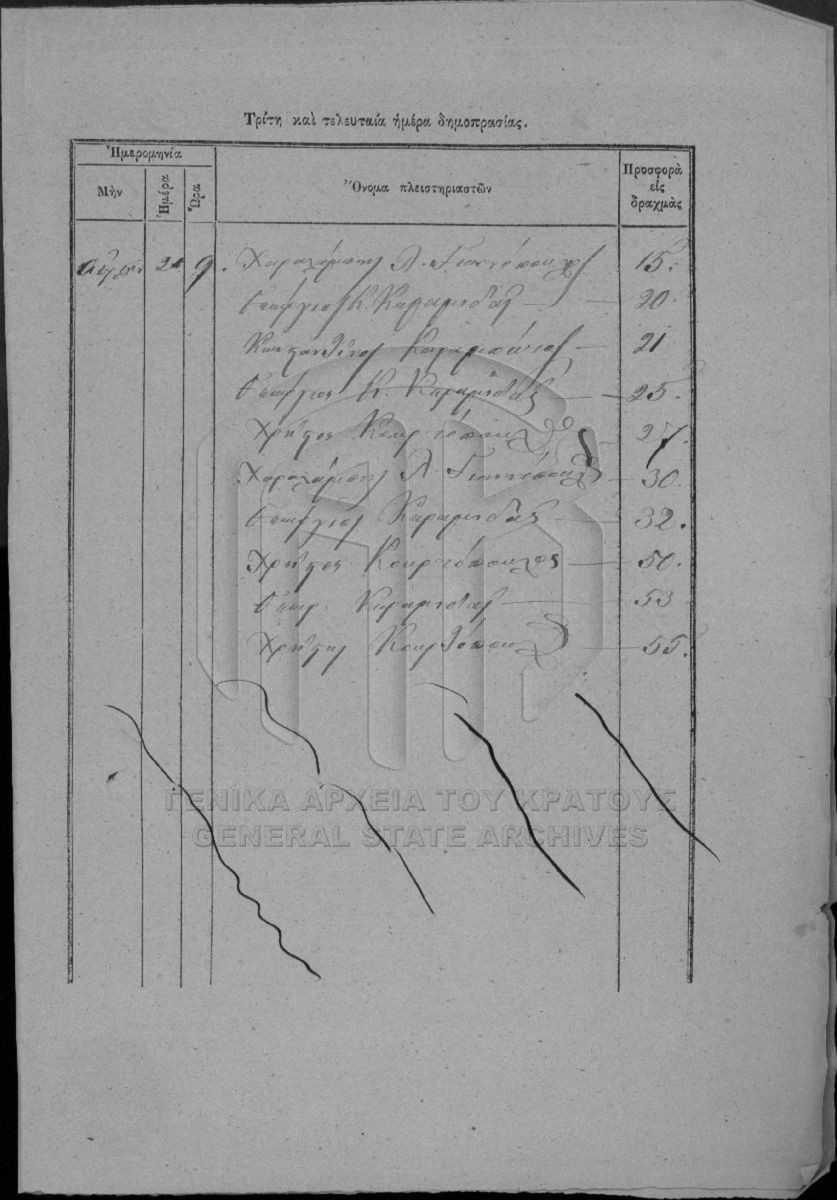 Τρίτη καὶ τελευταία ἡμέρα δημοπρασίας.
Ἡμερομηνία
Μὴν Ἡμέρα Ὥρα Ὄνομα πλειστηριαστῶν Προσφορὰ εἰς δραχμὰς
9. Χαραλάμπης Λ. Γιαννόπουλος 15.
Γεώργιος Κ. Καραμιδᾶς 20.
Κωνσταντῖνος 21
Γεώργιος Κ. Καραμιδᾶς 25.
Χρῆστος Κουρτόπουλος 27.
Χαραλάμπης Λ. Γιαννόπουλος 30.
Γεώργιος Καραμιδᾶς 32.
Χρῆστος Κουρτόπουλος 50.
Γεωρ. Καραμιδᾶς 53
Χρῆστος Κουρτόπουλος 55.
ΓΕΝΙΚΑ ΑΡΧΕΙΑ ΤΟΥ ΚΡΑΤΟΥΣ
GENERAL STATE ARCHIVES